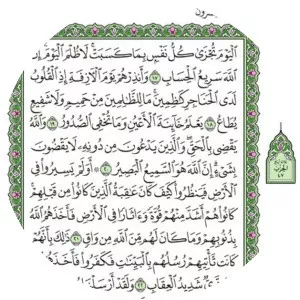 ٱلۡيَوۡمَ تُجۡزَىٰ كُلُّ نَفۡسِۭ بِمَا كَسَبَتۡۚ لَا ظُلۡمَ ٱلۡيَوۡمَۚ إِنَّ
ٱللَّهَ سَرِيعُ ٱلۡحِسَابِ ١٧ وَأَنذِرۡهُمۡ يَوۡمَ ٱلۡأٓزِفَةِ إِذِ ٱلۡقُلُوبُ
لَدَى ٱلۡحَنَاجِرِ كَٰظِمِينَۚ مَا لِلظَّٰلِمِينَ مِنۡ حَمِيمٖ وَلَا شَفِيعٖ
يُطَاعُ ١٨ يَعۡلَمُ خَآئِنَةَ ٱلۡأَعۡيُنِ وَمَا تُخۡفِي ٱلصُّدُورُ ١٩ وَٱللَّهُ
يَقۡضِي بِٱلۡحَقِّۖ وَٱلَّذِينَ يَدۡعُونَ مِن دُونِهِۦ لَا يَقۡضُونَ
بِشَيۡءٍۗ إِنَّ ٱللَّهَ هُوَ ٱلسَّمِيعُ ٱلۡبَصِيرُ ٢٠ أَوَلَمۡ يَسِيرُواْ فِي
ٱلۡأَرۡضِ فَيَنظُرُواْ كَيۡفَ كَانَ عَٰقِبَةُ ٱلَّذِينَ كَانُواْ مِن قَبۡلِهِمۡۚ
كَانُواْ هُمۡ أَشَدَّ مِنۡهُمۡ قُوَّةٗ وَءَاثَارٗا فِي ٱلۡأَرۡضِ فَأَخَذَهُمُ ٱللَّهُ
بِذُنُوبِهِمۡ وَمَا كَانَ لَهُم مِّنَ ٱللَّهِ مِن وَاقٖ ٢١ ذَٰلِكَ بِأَنَّهُمۡ
كَانَت تَّأۡتِيهِمۡ رُسُلُهُم بِٱلۡبَيِّنَٰتِ فَكَفَرُواْ فَأَخَذَهُمُ
شَدِيدُ ٱلۡعِقَابِ ٢٢ وَلَقَدۡ أَرۡسَلۡنَا
الحزب
٤٧